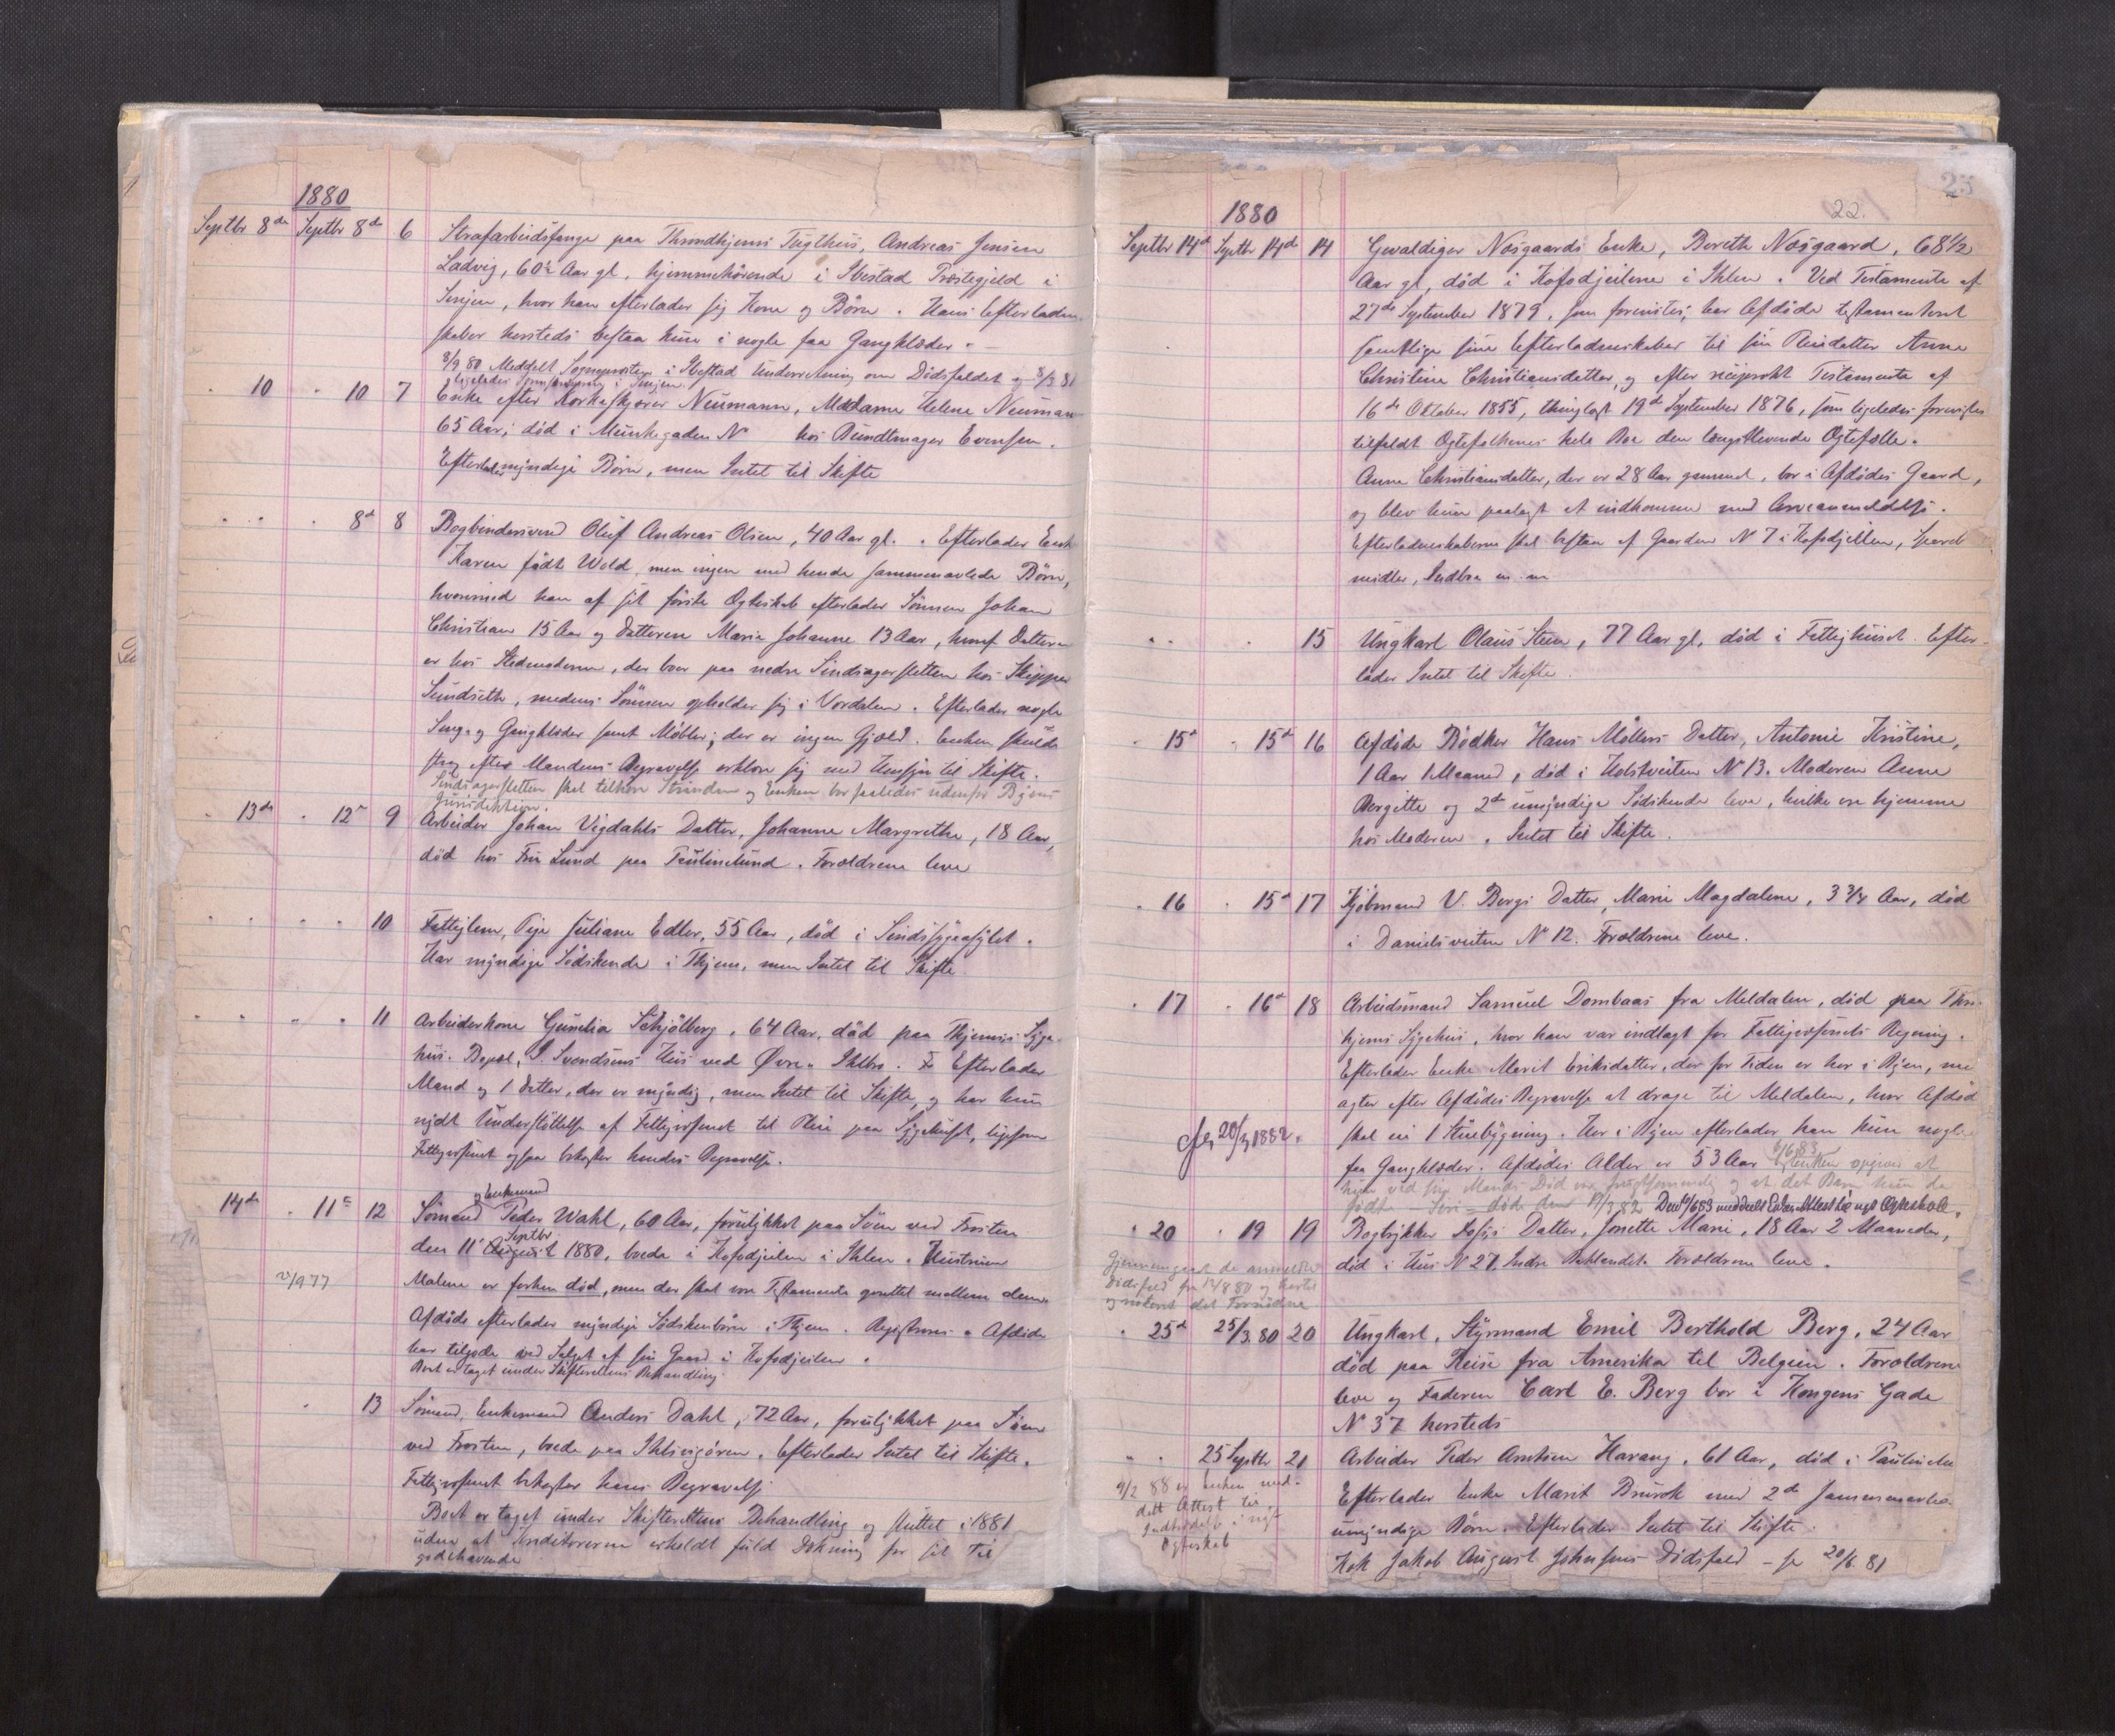 1880
Septbr 8de Septbr 8de 6 Strafarbeidsfange paa Throndhjems Tugthus, Andreas Jensen
Ladvig, 60½ Aar gl, hjemmehörende i Ibestad Præstegjeld i
Senjen, hvor han efterlader sig Kone og Börn. Hans Efterladen-
skaber hersteds bestaa kun i nogle faa Gangklæder. –
8/9 80 Meddelt Sogneprosten i Ibestad Underretning om Dödsfaldet og 8/3 81
ligeledes i Senjen.
" 10 " 10 7 Enke efter Neumann, Madame Helene Neumann
65 Aar, död i Munkegaden No hos Bundtmager Evensen.
Efterlader myndige Börn, men Intet til Skifte
" " " 8de 8 Bogbindersvend Oluf Andreas Olsen, 40 Aar gl. Efterlader Enke
Karen födt Wold, men ingen med hende sammenavlede Börn,
hvorimod han af sit förste Ægteskab efterlader Sönnen Johan
Christian 15 Aar og Datteren Marie Johanne 13 Aar, hvoraf Datteren
er hos Stedmoderen, der boer paa nedre Sindsagersletten hos Skipper
Sundseth, medens Sönnen opholder sig i Værdalen. Efterlader nogle
Senge og Gangklæder samt Möbler; der er ingen Gjæld. Enken skulde
strax efter Mandens Begravelse erklære sig med Hensyn til Skifte.
Sindsagersletten skal tilhöre Strinden og Enken bor saaledes udenfor Byens
Jurisdiktion.
" 13de " 12te 9 Arbeider Johan Vigdahls Datter, Johanne Margrethe, 18 Aar,
död hos Fru Lund paa Paulinelund. Forældrene leve
" " " " 10 Fattiglem, Pige Juliane Edler, 55 Aar, död i Sindssygeasylet.
Har myndige Södskende i Thjem, men Intet til Skifte
" " " " 11 Arbeiderkone Gunelia Schjölberg, 64 Aar, död paa Thjems Syge-
hus. Bopæl, Svendsens Hus ved Øvre Ihlen. Efterlader
Mand og 1 Datter, der er myndig, men Intet til Skifte, og har hun
nydt Understöttelse af Fattigvæsenet til Pleie paa Sygehuset, ligesom
Fattigvæsenet ogsaa bekoster hendes Begravelse.
og Enkemand
14de " 11te 12 Sömand Peder Wahl, 60 Aar, forulykket paa Söen ved Frosten
Septbr
den 11te August 1880, boede i Kofodgeilen i Ihlen. Hustruen
2/9 77 Malene er forhen död, men der skal være Testamente oprettet mellem dem.
Afdöde efterlader myndige Södskenbörn i Thjem. Registreres. Afdöde
har tilgode ved Salget af sin Gaard i Kofodgeilen.
Boet er taget under Skifterettens Behandling.
" 13 Sömand, Enkemand Anders Dahl, 72 Aar, forulykket paa Söen
ved Frosten, boede paa Ihlsvigören. Efterlader Intet til Skifte.
Fattigvæsenet bekoster hans Begravelse
Boet er taget under Skifterettens Behandling og sluttet i 1881
uden at Kreditorerne erholdt fuld Dækning for sit Til-
godehavende
25
22.
1880
Septbr 14de Septbr 14de 14 Gevaldiger Næsgaards Enke, Bereth Næsgaard, 68½
Aar gl, död i Kofodgeilene i Ihlen. Ved Testamente af
27de September 1879, som forevistes, har Afdöde testamenteret
samtlige sine Efterladenskaber til sin Pleiedatter Anne
Christine Christiansdatter, og efter reciprokt Testamente af
16de Oktober 1855, thinglæst 19de September 1876, som ligeledes forevistes
tilfaldt Ægtefolkenes hele Boe den længstlevende Ægtefælle.
Anne Christiansdatter, der er 28 Aar gammel, bor i Afdödes Gaard,
og blev hun paalagt at indkomme med Arveanmeldelse.
Efterladenskaberne skal bestaa af Gaarden No 7 i Kofodgeilen, Spare-
midler, Indbo m. m.
" " " 15 Ungkarl Olaus Steen, 77 Aar gl, död i Fattighuset. Efter-
lader Intet til Skifte.
" 15de " 15de 16 Afdöde Bödker Hans Möllers Datter, Antonie Kristine,
1 Aar 1 Maaned, död i Holstveiten No 13. Moderen Anne
Bergitte og 2de umyndige Södskende leve, hvilke ere hjemme
hos Moderen. Intet til Skifte.
" 16 " 15de 17 Kjöbmand V. Bergs Datter, Marie Magdalene, 3¾ Aar, död
i Danielsveiten No 12. Forældrene leve.
" 17 " 16de 18 Arbeidsmand Samuel Dombaas fra Meldalen, död paa Thr-
hjems Sygehus, hvor han var indlagt for Fattigvæsenets Regning.
Efterlader Enke Marit Eriksdatter, der for Tiden er her i Byen, men
agter efter Afdödes Begravelse at drage til Meldalen, hvor Afdöde
cfr 20/3 1882. skal eie 1 Stuebygning. Her i Byen efterlader han kun nogle
faa Gangklæder. Afdödes Alder er 53 Aar 6/6 83 Enken opgiver at
hun ved sin Mands Död var frugtsommelig og at det Barn hun da
födte – – döde den 17/3 82 Den 6/6 83 meddelt Enken Attest til nyt Ægteskab.
" 20 " 19 19 Bogtrykker Datter, Jonette Marie, 18 Aar 2 Maaneder,
död i Hus No 27, Indre Baklandet. Forældrene leve.
Gjennemgaaet de anmeldte
Dödsfald fra 12/8 80 og
og noteret det Fornödne
" 25de 25/3. 80 20 Ungkarl, Styrmand Emil Berthold Berg, 24 Aar
död paa Reise fra Amerika til Belgien. Forældrene
leve og Faderen Carl E. Berg bor i Kongens Gade
No 37 hersteds
" " 25 Septbr 21 Arbeider Peder Arntsen Harang, 61 Aar, död i Paulinelu
Efterlader Enke Marit Brurok med 2de sammenavlede
umyndige Börn. Efterlader Intet til Skifte.
9/2 88 er Enken med-
delt Attest til
Indtrædelse i nyt
Ægteskab
Kok Jakob August Johnsens Dödsfald – se 20/6. 81